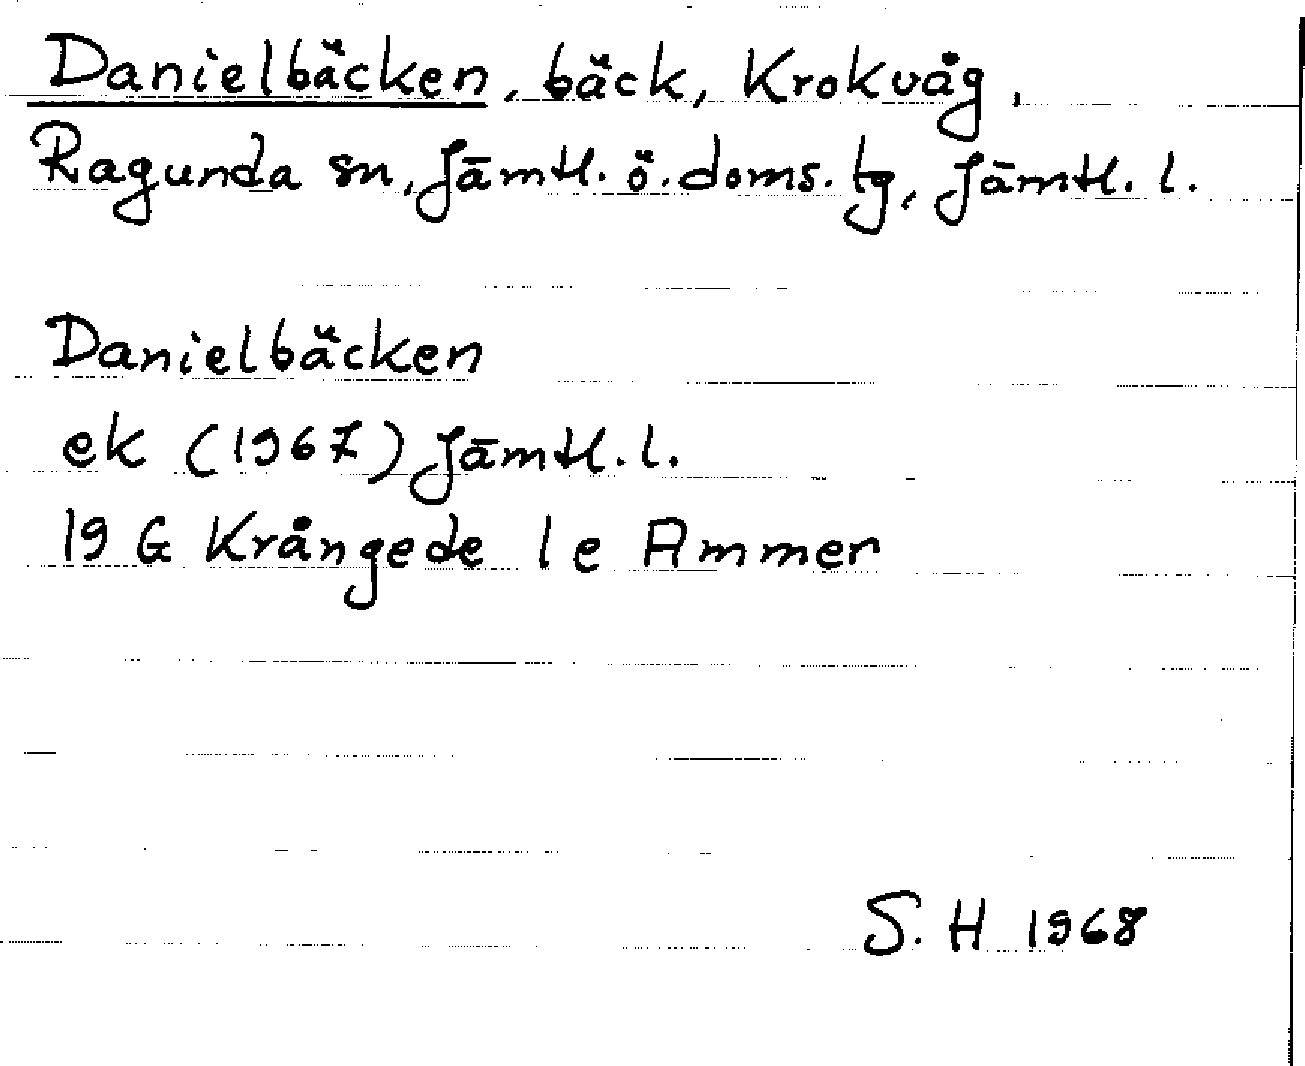 Danielbäcken, bäck, Krokvåg,
Ragunda sn, Jämtl. ö. doms. tg, Jämtl. l.
Danielbäcken
ek (1967) Jämtl. l.
19 G Krångede 1 e Ammer
S. H 1968